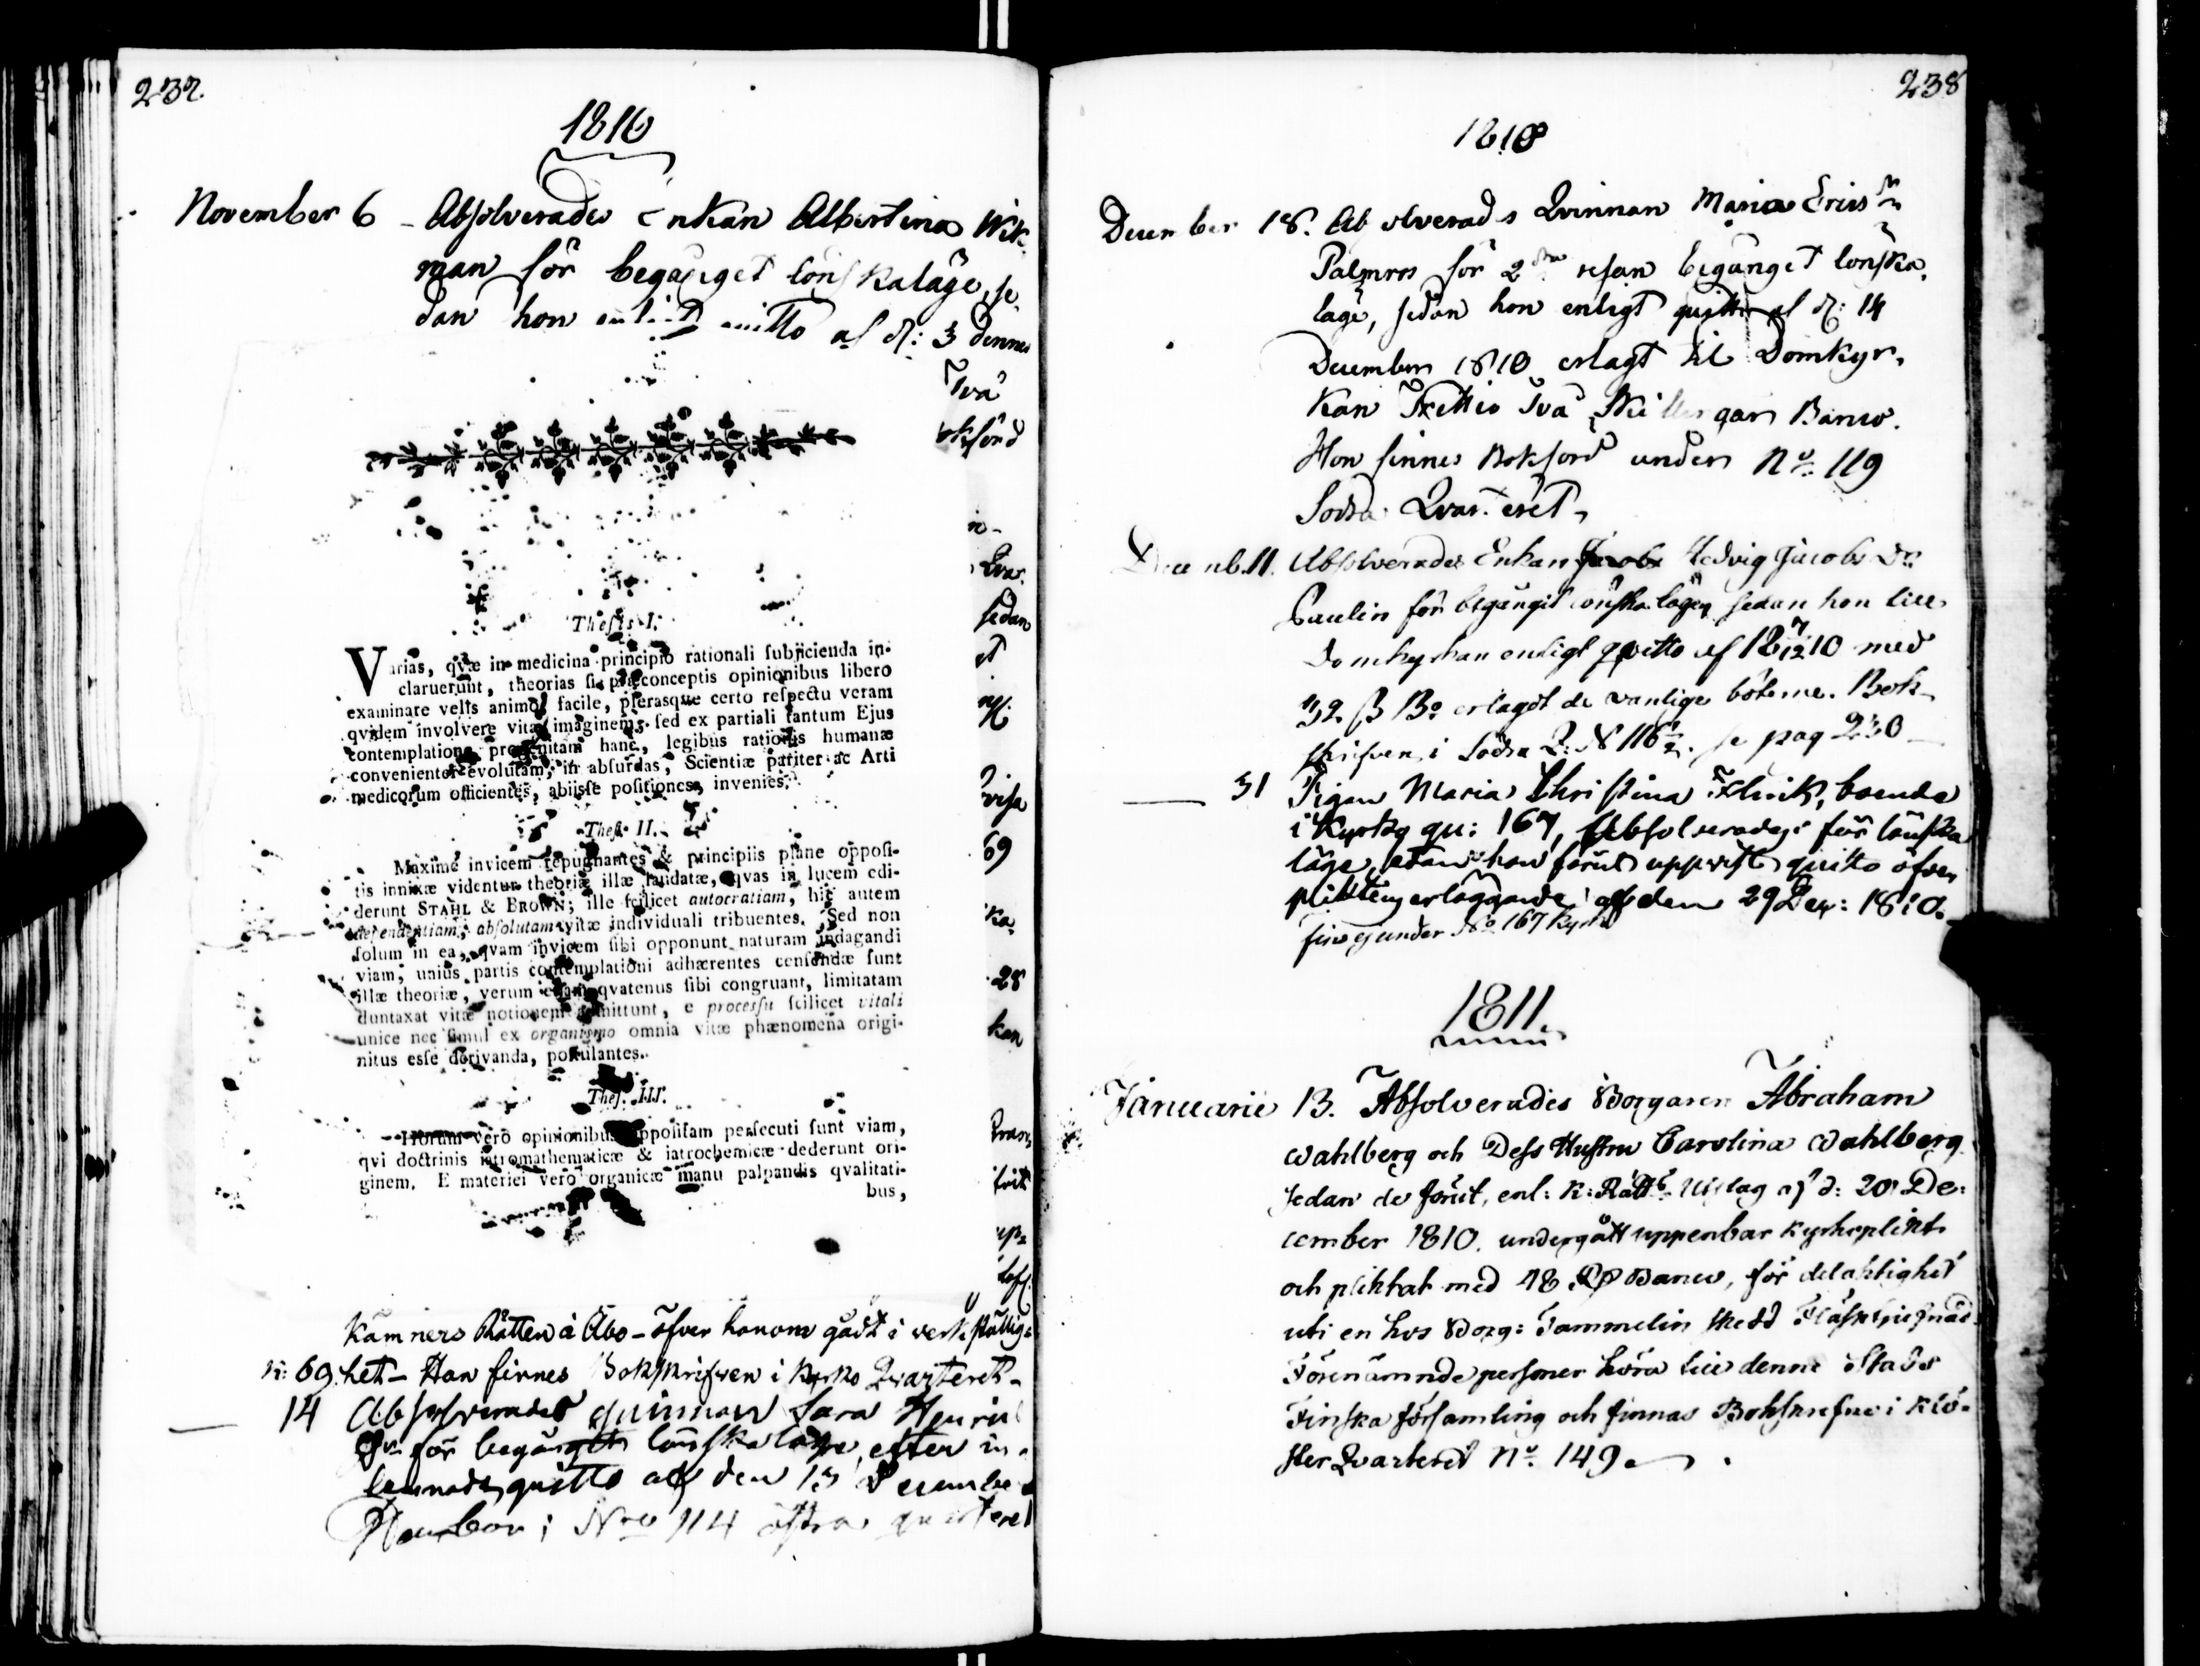 237.
1810
November 6 - Absolverades Enkan Albertina Wik-
man för begånget lönskaläge, se-
dan hon enligt quitto af d: 3 dennes
Två
okförd
n-
Qvar-
sedan
et
visa
69
ka-
28
kan
Thesis I.
Varias, qvæ in medicina principio rationali subjicienda in-
claruerunt, theorias si præconceptis opinionibus libero
examinare velis animo, facile, plerasque certo respectu veram
qvidem involvere vitæ imaginem, sed ex partiali tantum Ejus
contemplatione progenitam hanc, legibus rationis humanæ
convenienter evolutam, in absurdas, Scientiæ pariter ac Arti
medicorum officientes, abiisse positiones, invenies.
Thes. II.
Maxime invicem repugnantes & principiis plane opposi-
tis innixæ videntur theoriæ illæ laudatæ, qvas in lucem edi-
derunt STAHL & BROWN; ille scilicet autocratiam, hic autem
dependentiam, absolutam vitæ individuali tribuentes. Sed non
solum in ea, qvam invicem sibi opponunt naturam indagandi
viam, unius partis contemplationi adhærentes censendæ sunt
illæ theoriæ, verum etiam qvatenus sibi congruant, limitatam
duntaxat vitæ notionem admittunt, e processu scilicet vitali
unice nec simul ex organismo omnia vitæ phænomena origi-
nitus esse derivanda, postulantes.
Thes. III.
Horum vero opinionibus oppositam persecuti sunt viam,
qvi doctrinis iatromathematicæ & iatrochemicæ dederunt ori-
ginem. E materiei vero organicæ manu palpandis qvalitati-
bus,
Kämners Rätten i Åbo - öfver honom gådt i verkställig-
N: 69. het - Han finnes Bokskrifven i Kyrko Qvarteret -
14 Absolverades quinnan Sara Henrics
Dr för begånget lönskaläge, efter in-
lemnadt quitto af den 13 December
Hon bor i Nro 114 östra quarteret
238
1810
December 18. Absolverades Qvinnan Maria Erics Dr
Palmros för 2dra resan begånget lönska-
läge, sedan hon enligt quitto af d: 14
December 1810 erlagt til Domkyr-
kan Trettio Två Skillingar Banco.
Hon finnes Bokförd under No 119
Södra Qvarteret.
Decemb. 11. Absolverades Enkan Jacobs Hedvig Jacobs Dr
Paulin för begånget lönskaläge, sedan hon till
Domkyrkan enligt qvitto af 18 7/12 10 med
32 ß Bo erlagdt de vanlige böterne. Bok-
skrifven i Södra Q: N 116 1/2. se pag 230
31 Pigan Maria Christina Flinck, boende
i Kyrko qu: 167, Absolverades för lönska
läge, sedan hon förut uppvist quitto öfver
pliktens erläggande af den 29 Dec: 1810.
fins under No 167 Kyrko
1811.
Januarii 13. Absolverades Borgaren Abraham
Wahlberg och Dess Hustru Carolina Wahlberg
sedan de förut, enl: K: Rätts Utslag af d: 20 De-
cember 1810. undergått uppenbar kyrkoplikt
och pliktat med 48 Rd Banco, för delaktighet
uti en hos Borg: Tammelin skedd Fläskstufnad.
Förenämnde personer höra till denne Stads
Finska församling och finnas Bokskrefne i Klö-
ster Qvarteret No 149.